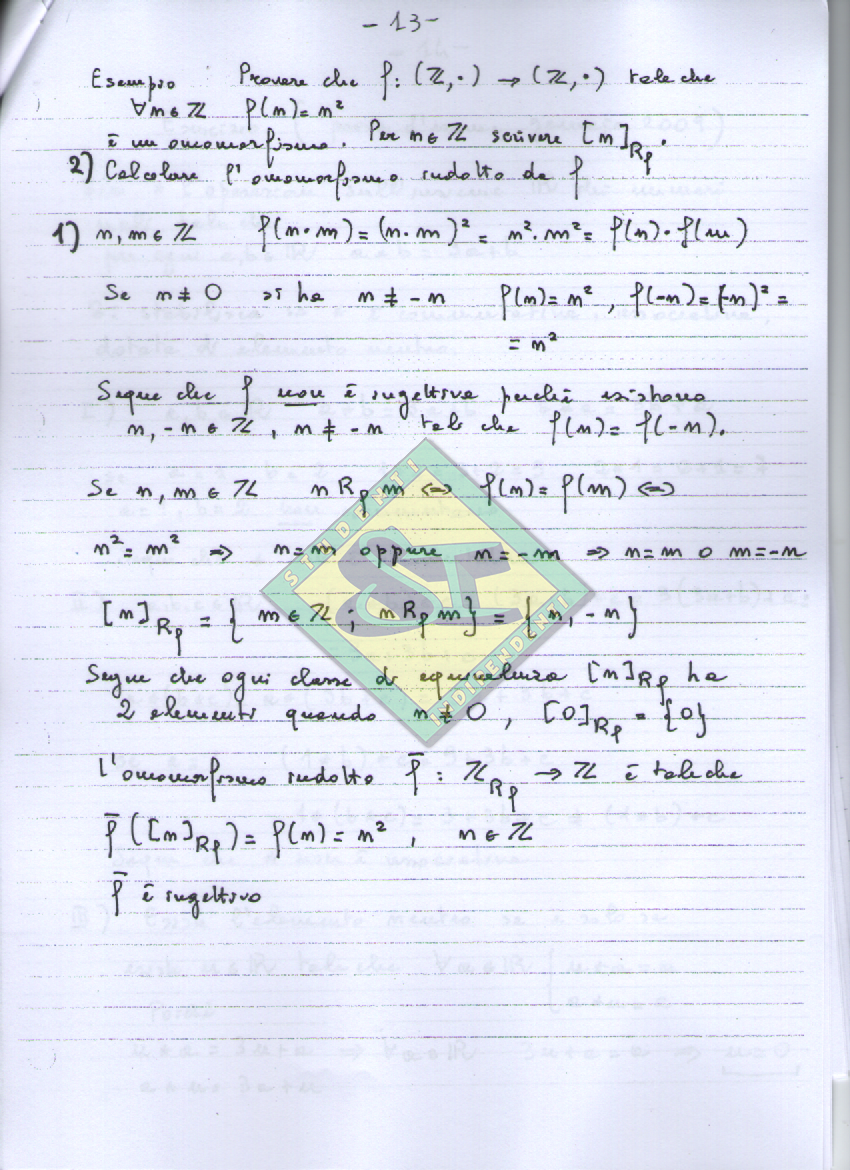 - 13 -
Esempio Provare che f: (ℤ,·) → (ℤ,·) tale che
∀n∈ℤ f(n)=n²
è un omomorfismo. Per n∈ℤ scrivere [n]_Rf.
2) Calcolare l'omomorfismo indotto da f
1) n,m∈ℤ f(n·m)=(n·m)²=n²·m²=f(n)·f(m)
Se n≠0 si ha n≠-n f(n)=n², f(-n)=(-n)²=
=n²
Segue che f non è ingettiva perché esistono
n,-n∈ℤ, n≠-n tali che f(n)=f(-n).
Se n,m∈ℤ n R_f m ⇔ f(n)=f(m) ⇔
n²=m² ⇒ n=m oppure n=-m ⇒ n=m o m=-n
[n]_Rf = { m∈ℤ ; n R_f m} = {n,-n}
Segue che ogni classe di equivalenza [n]_Rf ha
2 elementi quando n≠0, [0]_Rf = {0}
l'omomorfismo indotto f̄: ℤ_Rf → ℤ è tale che
f̄([n]_Rf)=f(n)=n², n∈ℤ
f̄ è ingettivo
STUDENTI
SI
INDIPENDENTI